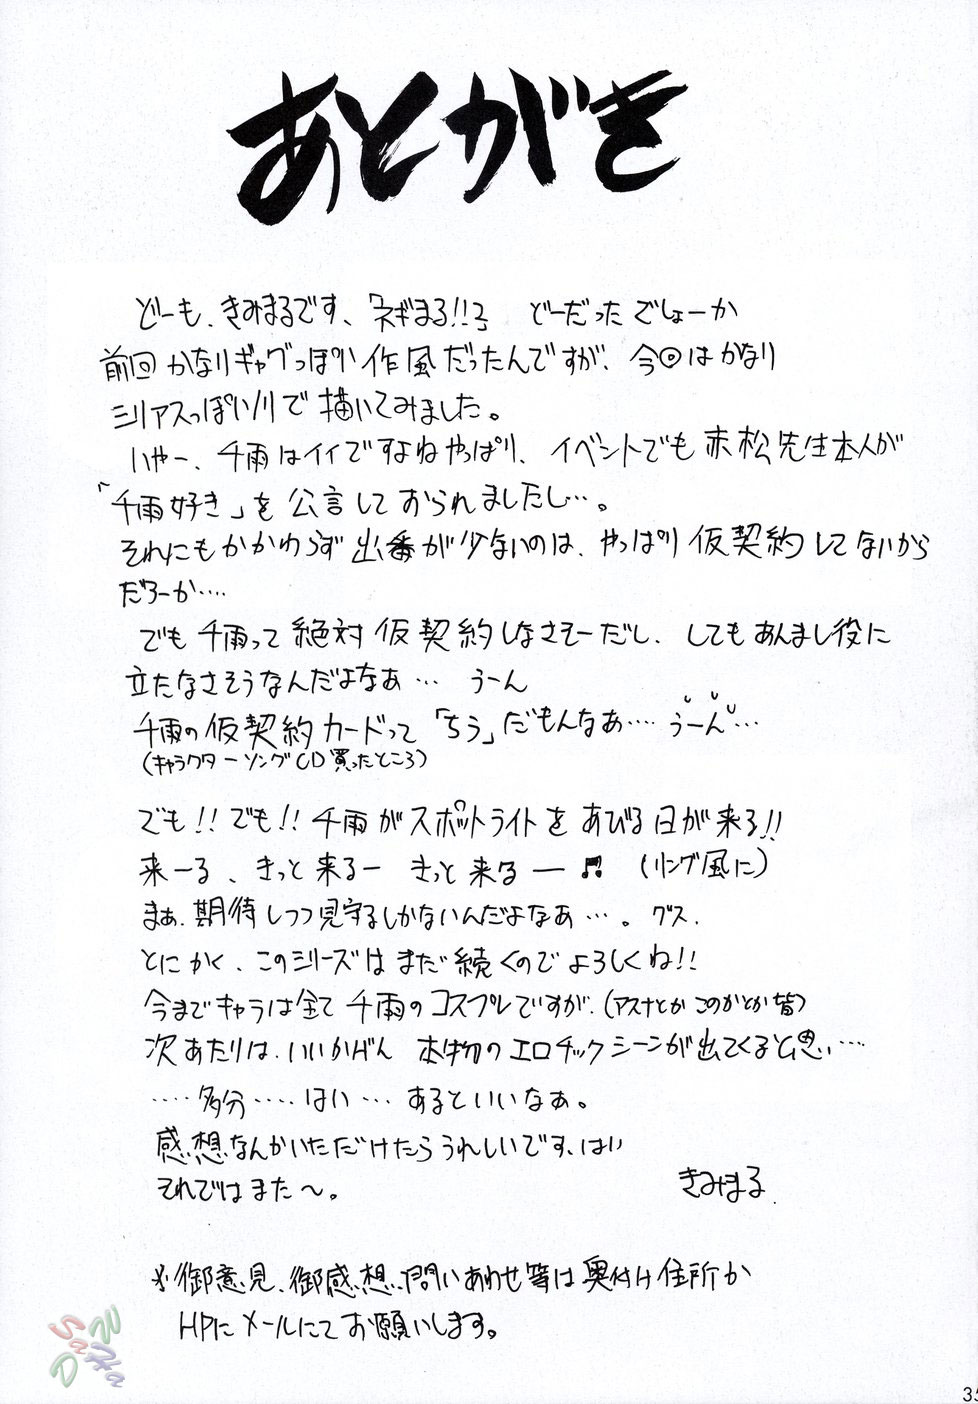 あとがき
どーも、きみまるです、「ネギまる!!2」 どーだったでしょーか
前回かなりギャグっぽい作風だったんですが、今回はかなり
シリアスっぽいノリで描いてみました。
いやー、千雨はイイですよねやっぱり、イベントでも赤松先生本人が
「千雨好き」を公言しておられましたし…。
それにもかかわらず出番が少ないのは、やっぱり仮契約してないから
だろーか‥‥
でも千雨って絶対仮契約しなさそーだし、してもあんまし役に
立たなさそうなんだよなぁ… うーん
千雨の仮契約カードって「ちう」だもんなぁ‥‥うーん…
(キャラクターソングCD買ったところ)
でも!!でも!!千雨がスポットライトをあびる日が来る!!
来ーる、きっと来るー きっと来るー♬ (リング風に)
まぁ、期待しつつ見守るしかないんだよなぁ…。グス.
とにかく、このシリーズはまだ続くのでよろしくね!!
今までキャラは全て千雨のコスプレですが、(アスナとかこのかとか皆)
次あたりは、いいかげん 本物のエロチックシーンが出てくると思い…
‥‥多分‥‥はい…あるといいなぁ。
感想なんかいただけたらうれしいです、はい
それではまた〜。
きみまる
※御意見、御感想、問いあわせ等は奥付け住所か
HPにメールにてお願いします。
35